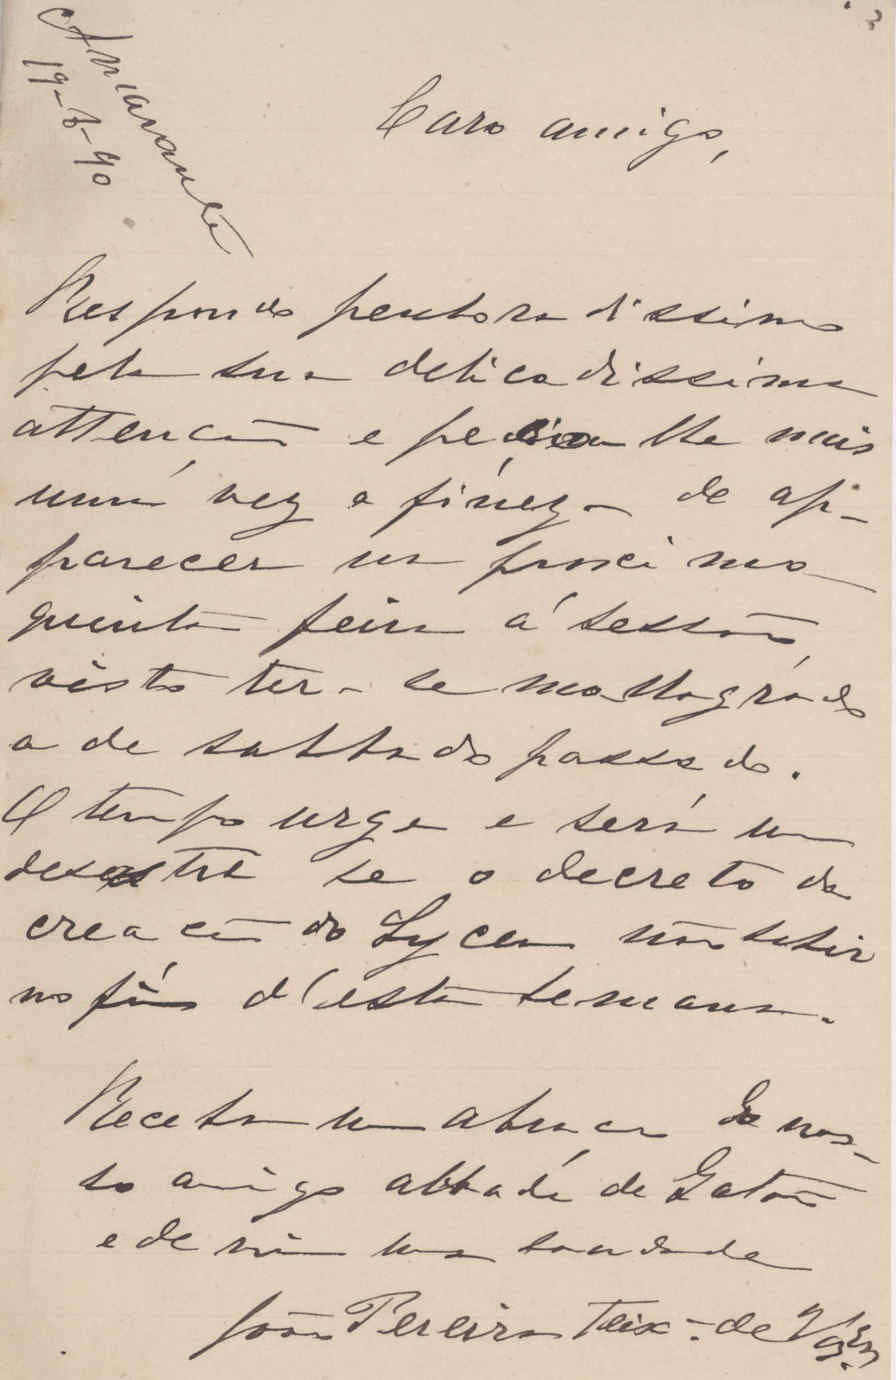 Amarante
19-8-90
Caro amigo,
Respondo penhoradissimo
pela sua delicadissima
attenção e peço-lhe mais
uma vez a fineza de ap-
parecer na proxima
quinta feira á sessão,
visto ter-se mallogrado
a de sabbado passado.
O tempo urge e será um
desastre se o decreto da
creação do Lyceu não sahir
no fim d'esta semana.
Receba um abraço do nos-
so amigo abbade de Gatão
e de mim uma saudade
João Pereira Teix.ra de